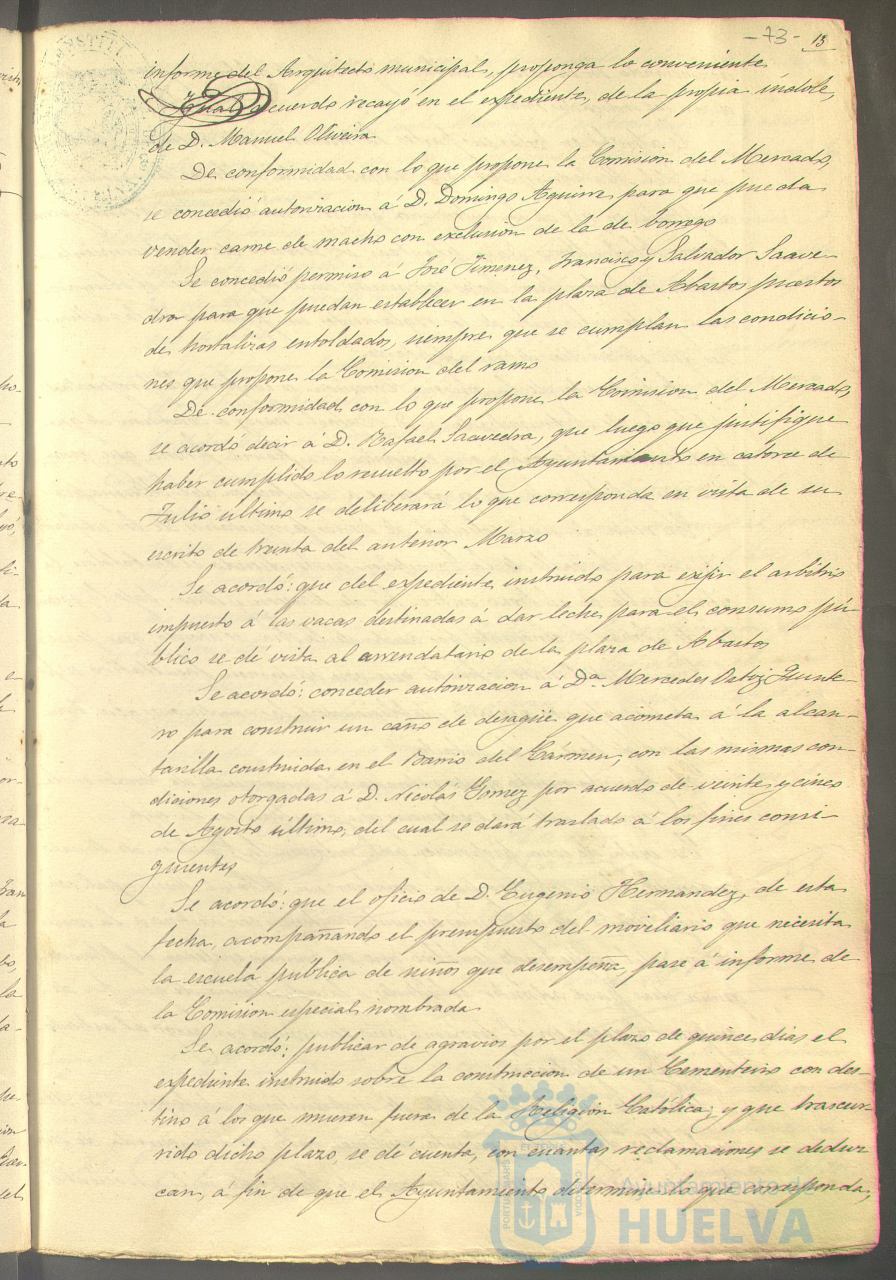 -73- 13
informe del Arquitecto municipal, proponga lo conveniente
Igual acuerdo recayó en el expediente, de la propia indole,
de D. Manuel Oliveira
De conformidad con lo que propone la Comision del Mercado,
se concedió autorizacion á D. Domingo Aguirre, para que pueda
vender carne de macho con exclusion de la de borrego
Se concedió permiso á José Jimenez, Francisco y Salvador Saave-
dra para que puedan establecer en la plaza de Abastos puestos
de hortalizas entoldados, siempre que se cumplan las condicio-
nes que propone la Comision del ramo
De conformidad con lo que propone la Comision del Mercado,
se acordó decir á D. Rafael Saavedra, que luego que justifique
haber cumplido lo resuelto por el Ayuntamiento en catorce de
Julio último se deliberará lo que corresponda en vista de su
escrito de treinta del anterior Marzo
Se acordó: que del expediente instruido para exijir el arbitrio
impuesto á las vacas destinadas á dar leche para el consumo pú-
blico se dé vista al arrendatario de la plaza de Abastos
Se acordó: conceder autorizacion á Dª Mercedes Quinte-
ro para construir un caño de desagüe que acometa á la alcan-
tarilla construida en el Barrio del Cármen, con las mismas con-
diciones otorgadas á D. Nicolás Gomez por acuerdo de veinte y cinco
de Agosto último, del cual se dará traslado á los fines consi-
guientes
Se acordó: que el oficio de D. Eugenio Hernandez, de esta
fecha, acompañando el presupuesto del moviliario que necesita
la escuela pública de niños que desempeña, pase á informe de
la Comision especial nombrada
Se acordó: publicar de agravios por el plazo de quince dias el
expediente instruido sobre la construccion de un Cementerio con des-
tino á los que mueren fuera de la Religion Católica, y que trascur-
rido dicho plazo, se dé cuenta, con cuantas reclamaciones se deduz
can, á fin de que el Ayuntamiento determine lo que corresponda,
Ayuntamiento de
HUELVA